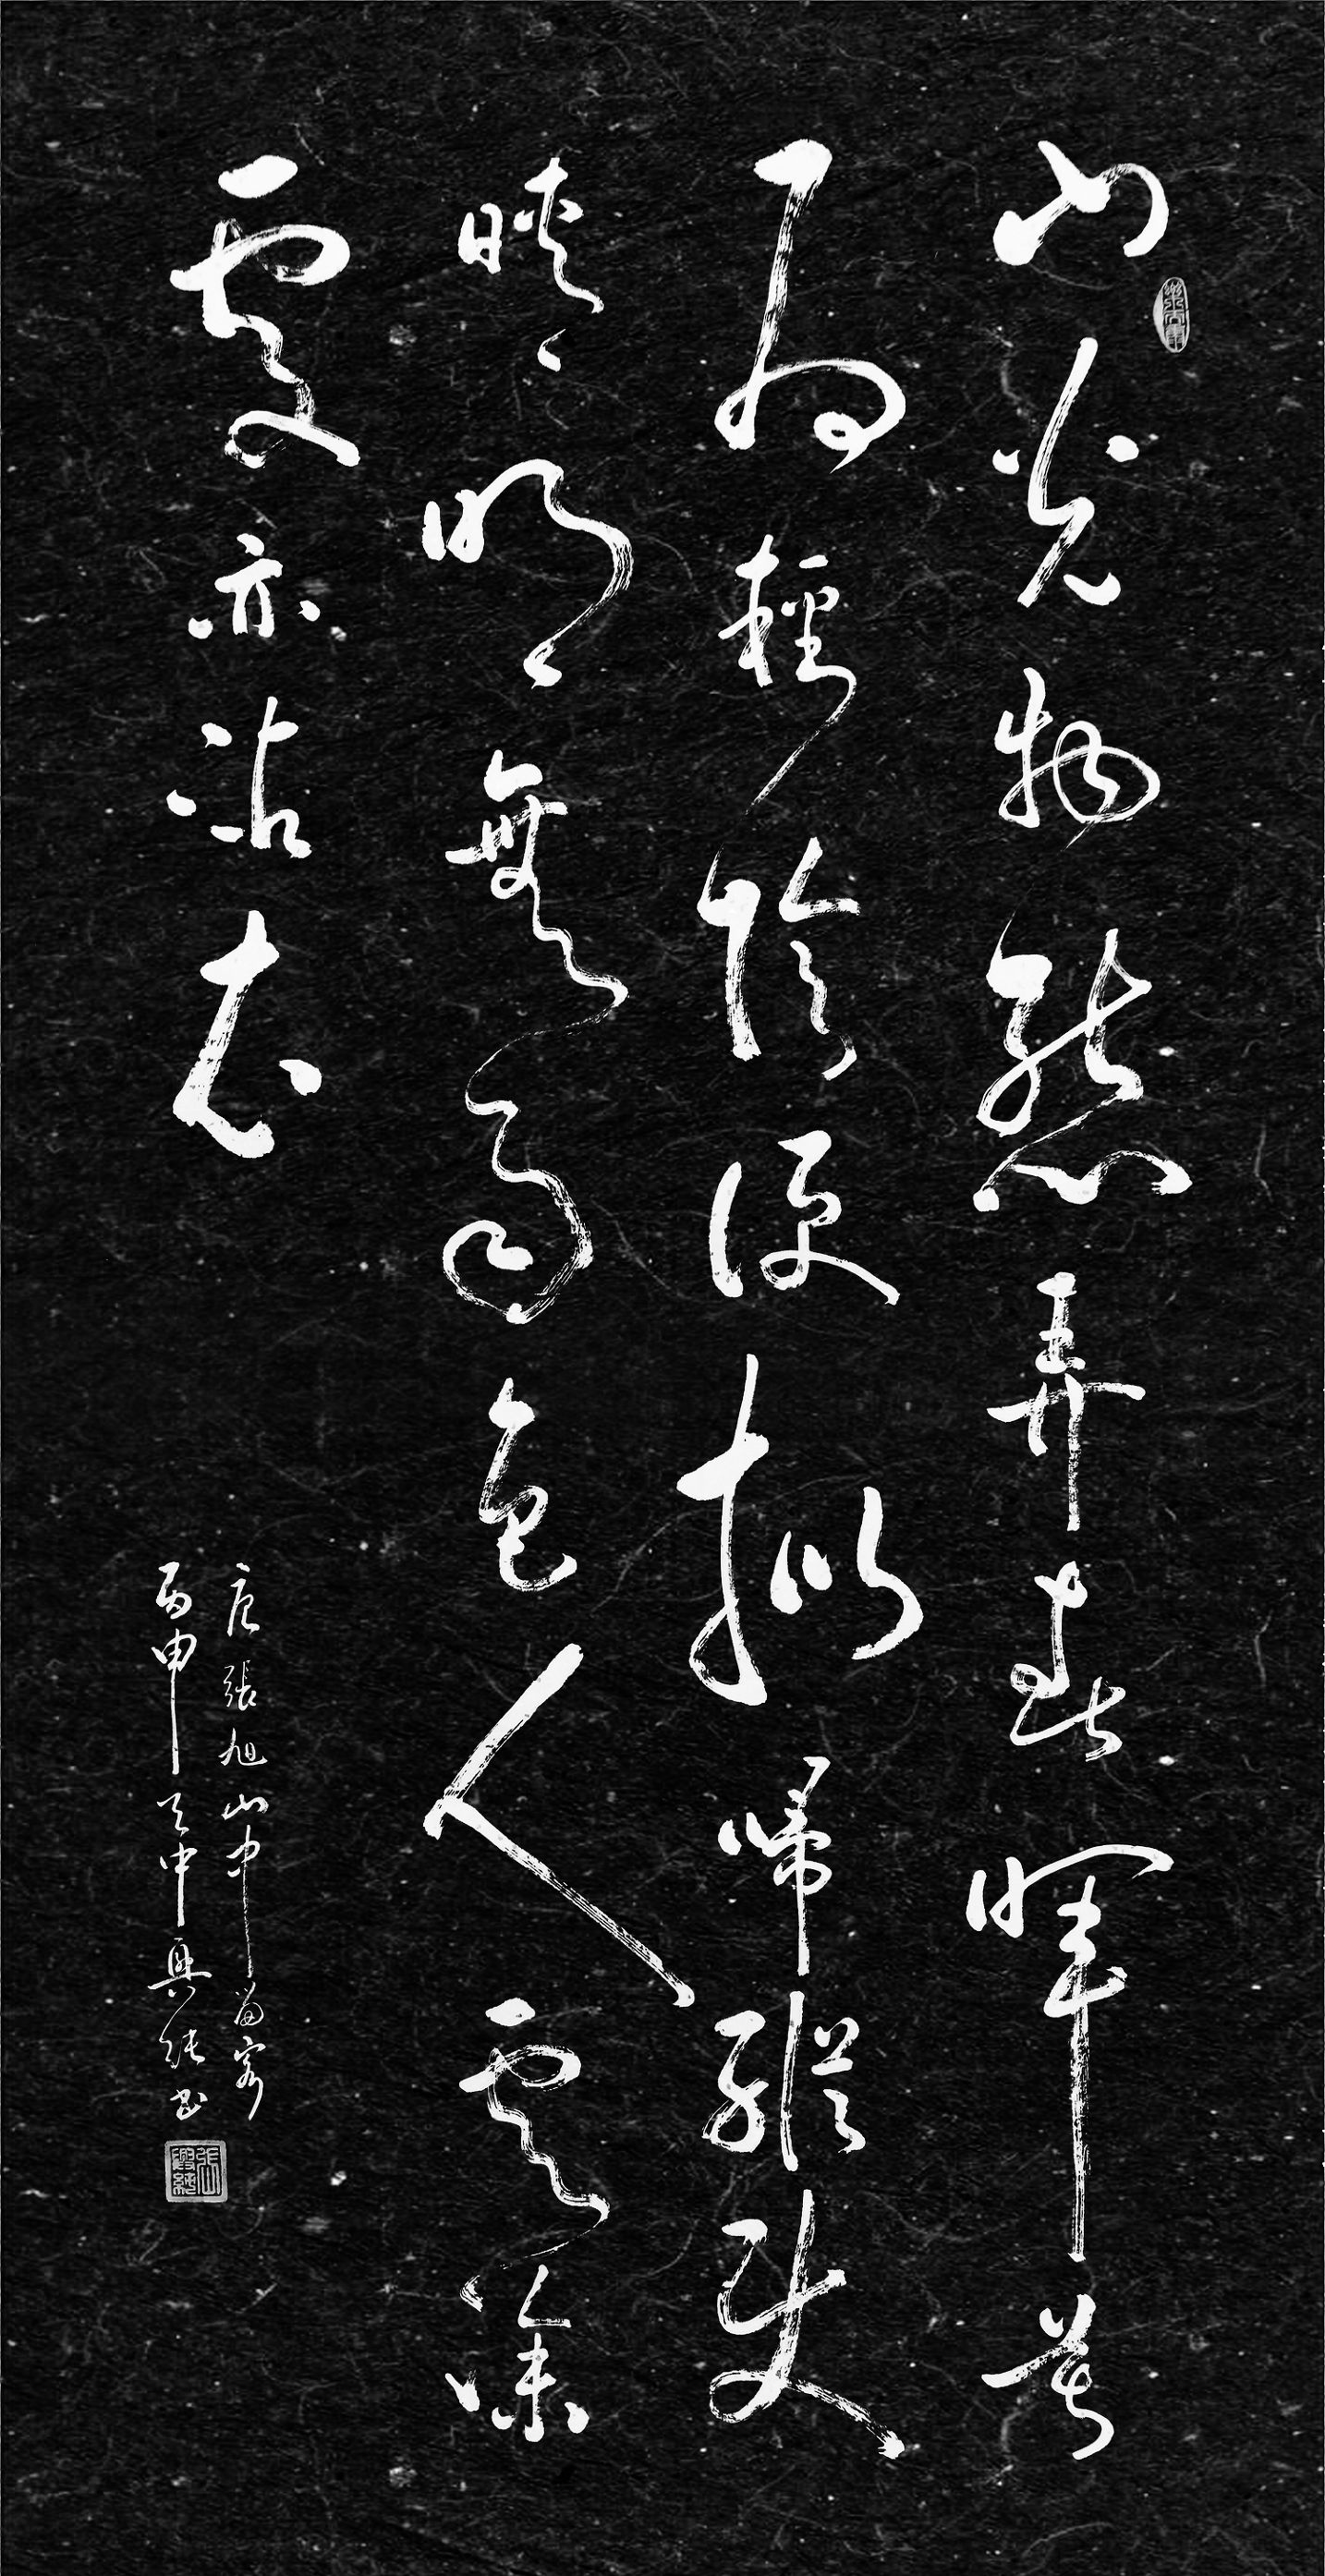 山光物態弄春暉莫
為輕陰便擬歸縱使
晴明無雨色入雲深
處亦沾衣
唐張旭山中留客
丙申天中興純書